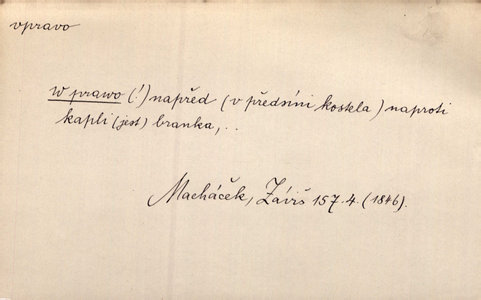 vpravo
w prawo (!) napřed (v předsíni kostela) naproti
kapli (jest) branka, . .
Macháček, Záviš 157. 4. (1846).